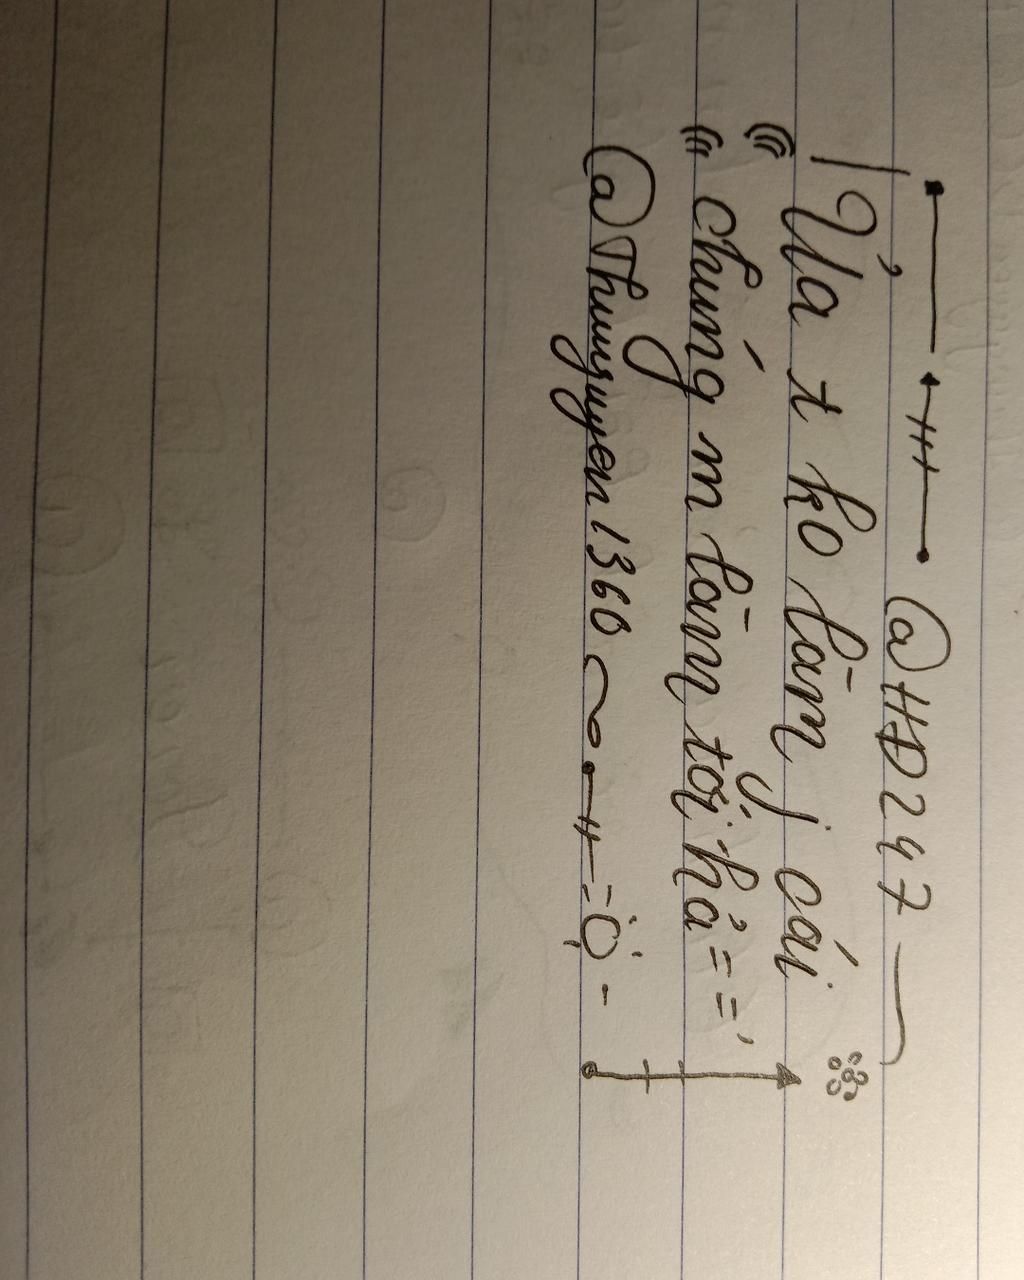 @HĐ247
Ủa t ko làm j oái
chúng m làm tới hả = =
@Thuuyen1360